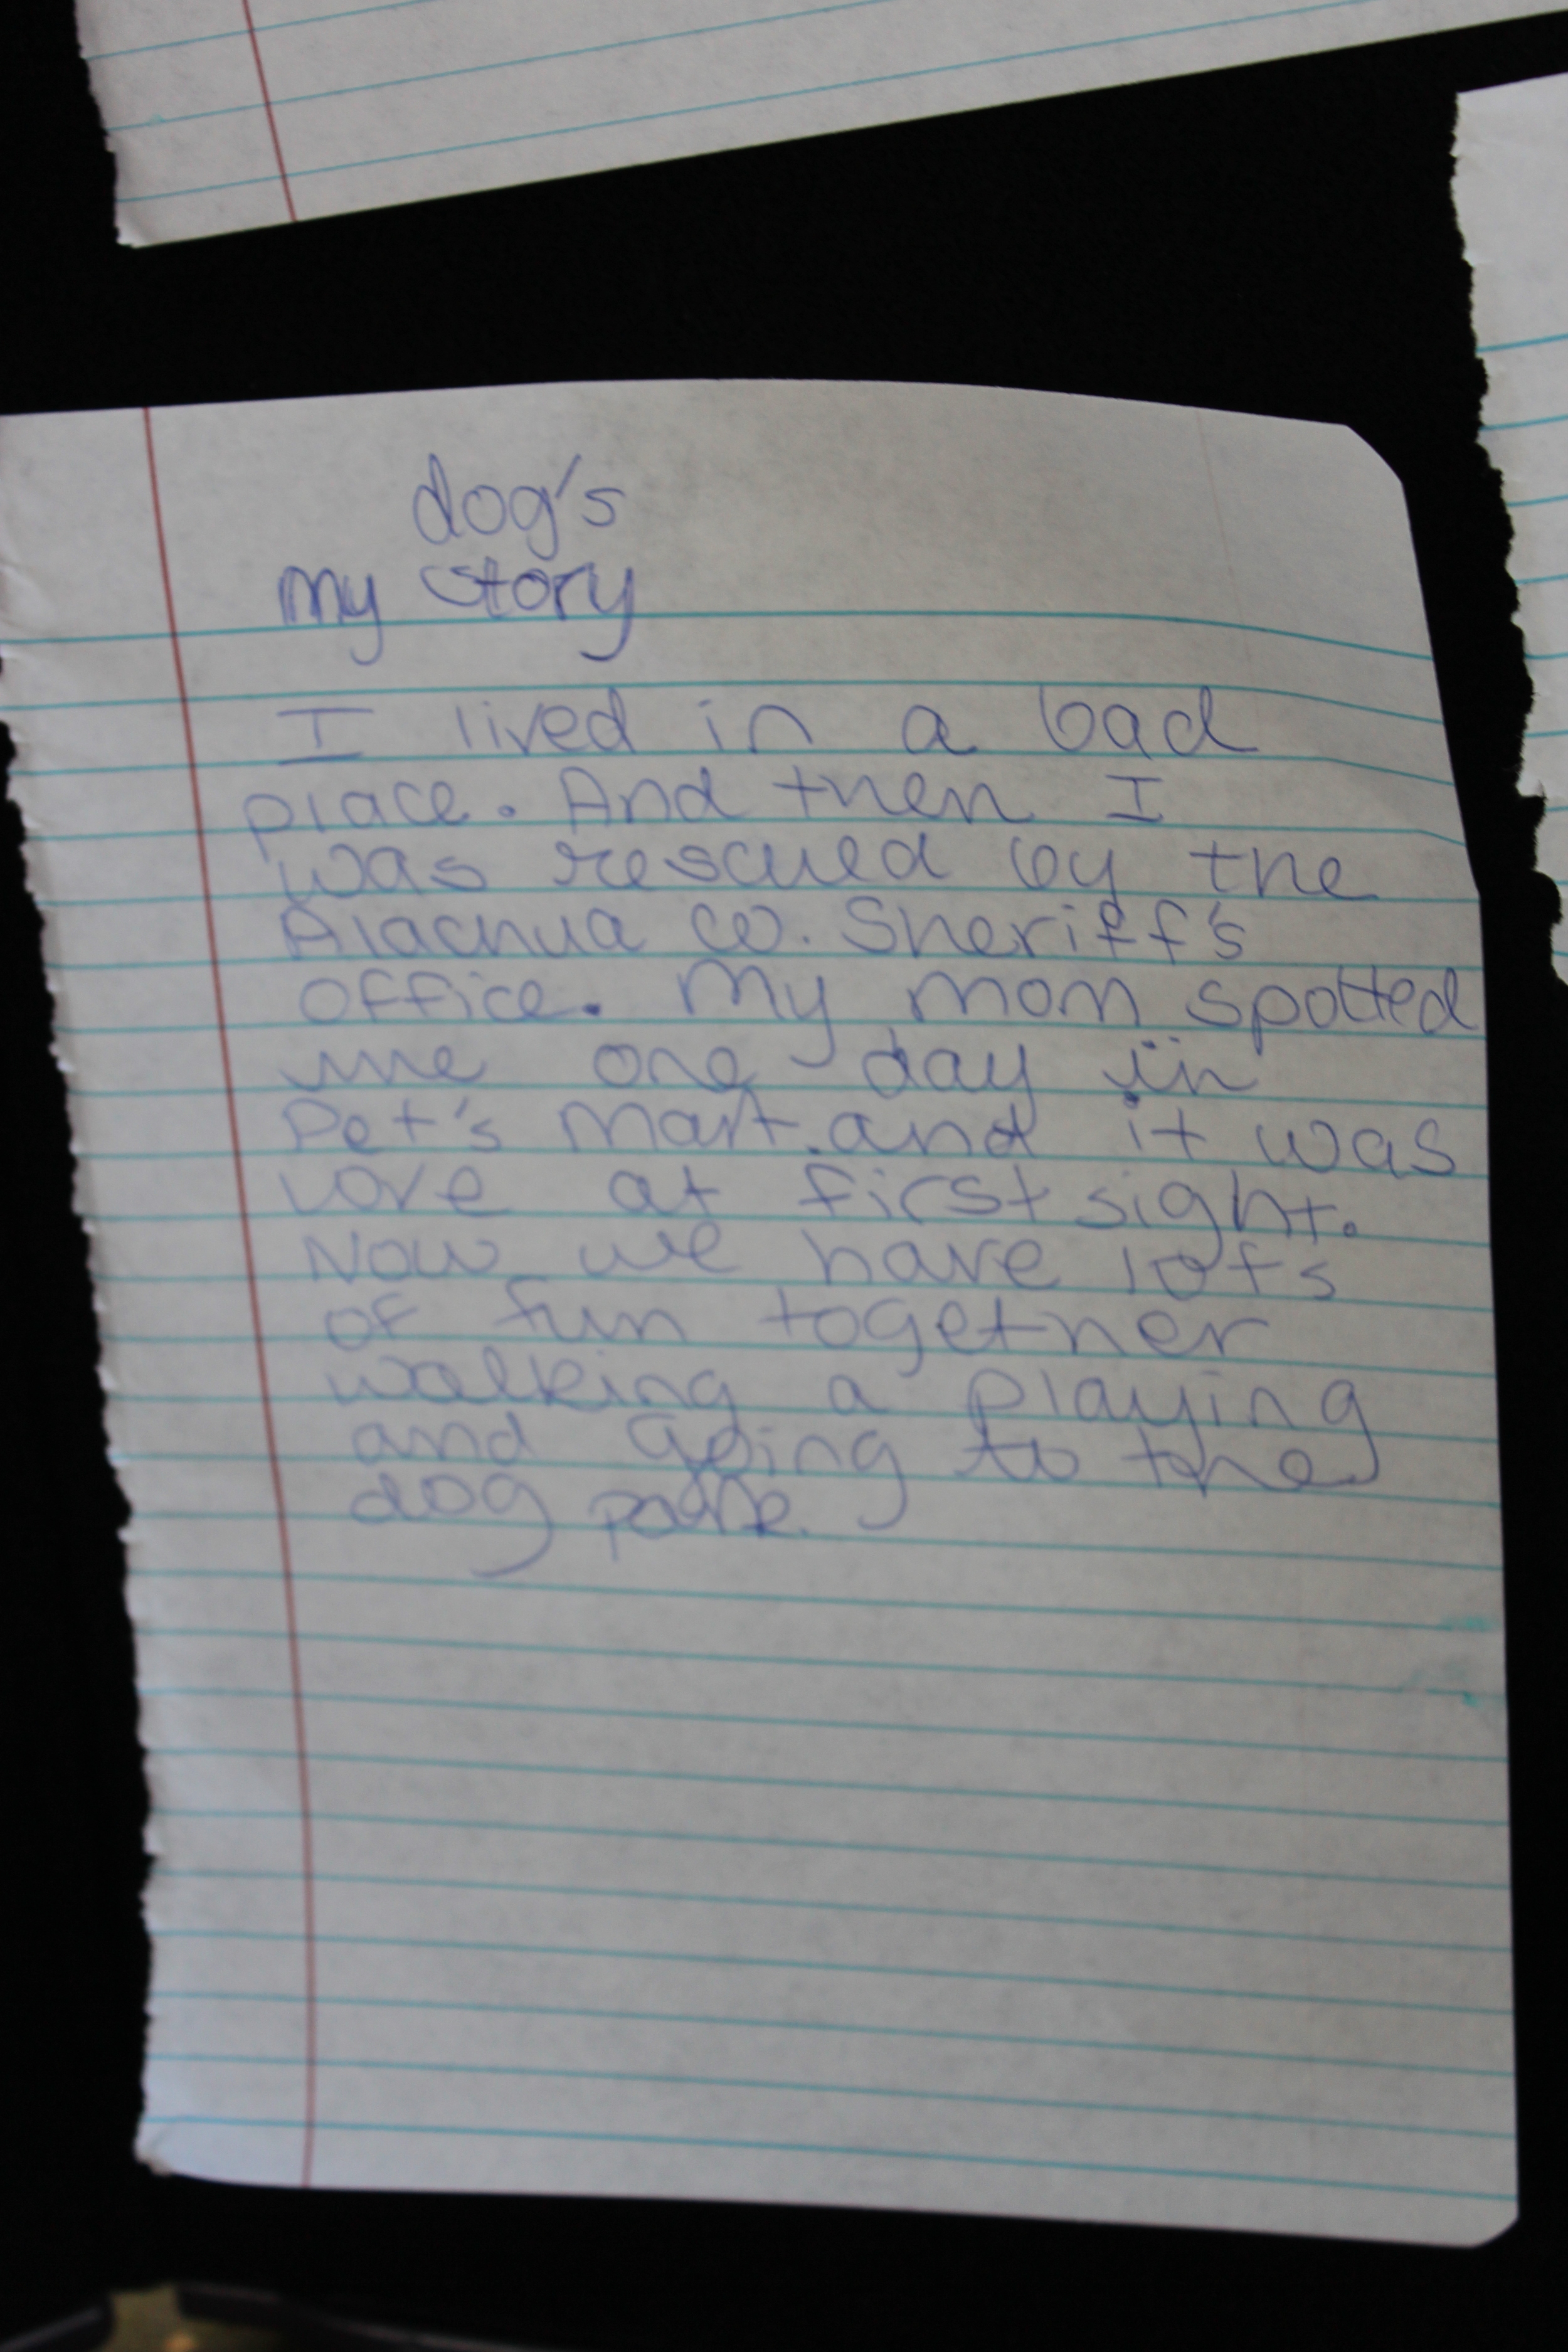 dog's
my story
I lived in a bad
place. And then I
was rescued by the
Alachua co. Sheriff's
office. My mom spotted
me one day in
Pet's Mart and it was
love at first sight.
Now we have lots
of fun together
walking a playing
and going to the
dog park.